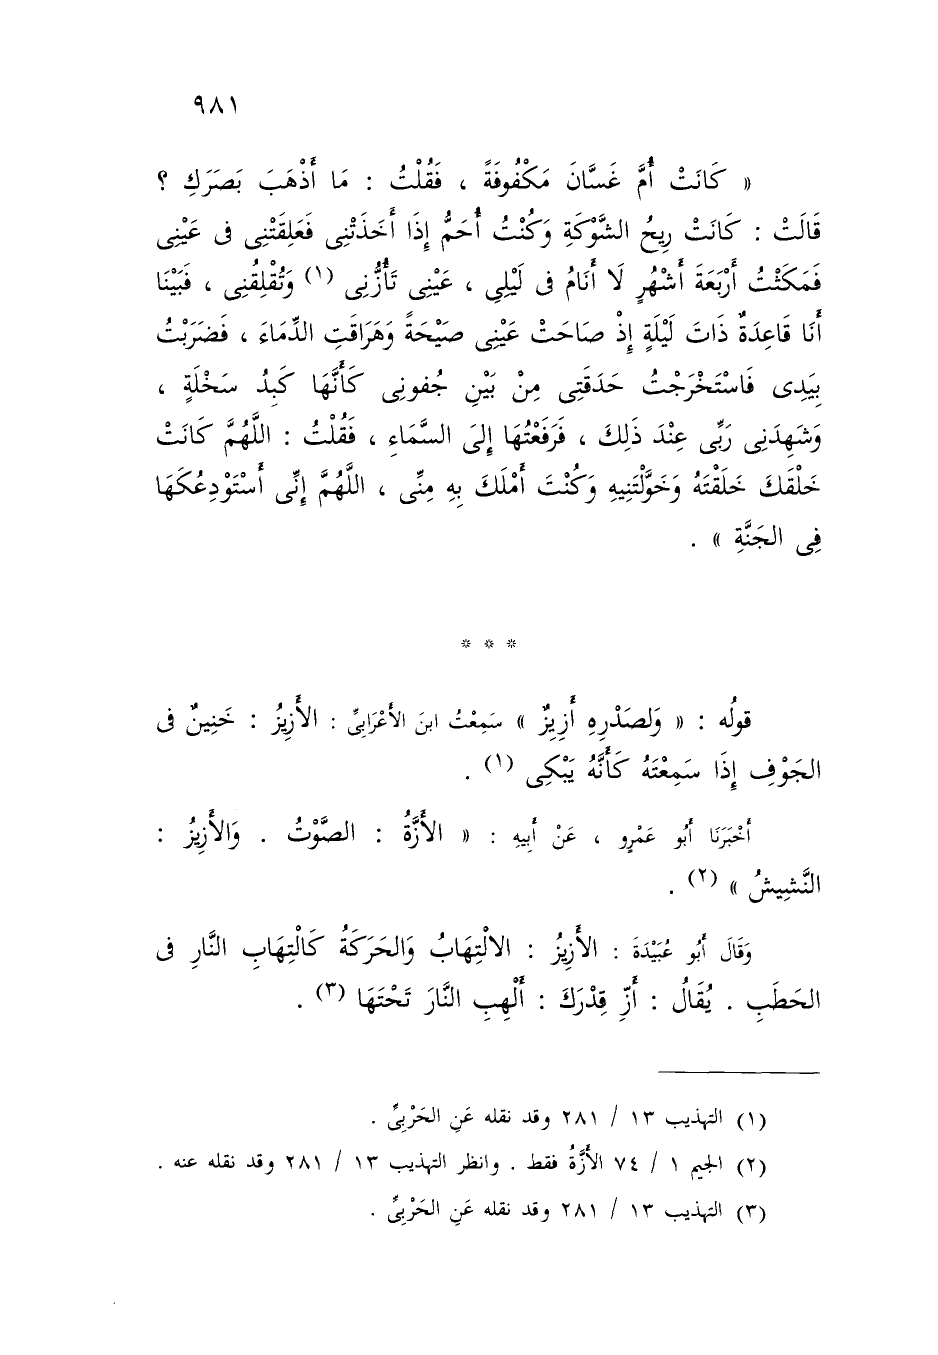 ٩٨١
« كَانَتْ أُمَّ غَسَّانَ مَكْفُوفَةً ، فَقُلْتُ : مَا أَذْهَبَ بَصَرَكِ ؟
قَالَتْ : كَانَتْ رِيحُ الشَّوْكَةِ وَكُنْتُ أُحَمُّ إِذَا أَخَذَتْنِى فَعَلِقَتْنِى فى عَيْنِى
فَمَكَثْتُ أَرْبَعَةَ أَشْهُرٍ لَا أَنَامُ فى لَيْلِي ، عَيْنِى تَأُزُّنِى (١) وَتُقْلِقُنِى ، فَبَيْنَا
أَنَا قَاعِدَةٌ ذَاتَ لَيْلَةٍ إِذْ صَاحَتْ عَيْنِى صَيْحَةً وَهَرَاقَتِ الدِّمَاءَ ، فَضَرَبْتُ
بِيَدِى فَاسْتَخْرَجْتُ حَدَقَتِى مِنْ بَيْنِ جُفونِى كَأَنَّهَا كَبِدُ سَخْلَةٍ ،
وَشَهِدَنِى رَبِّى عِنْدَ ذَلِكَ ، فَرَفَعْتُهَا إِلىَ السَّمَاءِ ، فَقُلْتُ : اللَّهُمَّ كَانَتْ
خَلْقَكَ خَلَقْتَهُ وَخَوَّلْتَنِيهِ وَكُنْتَ أَمْلَكَ بِهِ مِنِّى ، اللَّهُمَّ إِنِّى أَسْتَوْدِعُكَهَا
فِى الجَنَّةِ » .
* * *
قولُه : « وَلصَدْرِهِ أَزِيزٌ » سَمِعْتُ ابنَ الأَعْرَابِىِّ : الأَزِيزُ : خَنِينٌ فى
الجَوْفِ إِذَا سَمِعْتَهُ كَأَنَّهُ يَبْكِى (١) .
أَخْبَرَنَا أَبُو عَمْرٍو ، عَنْ أَبِيهِ : « الأَزَّةُ : الصَّوْتُ . وَالأَزِيزُ :
النَّشِيشُ » (٢) .
وَقَالَ أَبُو عُبَيْدَةَ : الأَزِيزُ : الالْتِهَابُ وَالحَرَكَةُ كَالْتِهَابِ النَّارِ فى
الحَطَبِ . يُقَالُ : أَزِّ قِدْرَكَ : أَلْهِبِ النَّارَ تَحْتَهَا (٣) .
(١) التهذيب ١٣ / ٢٨١ وقد نقله عَنِ الحَرْبِىِّ .
(٢) الجيم ١ / ٧٤ الأَزَّةُ فقط . وانظر التهذيب ١٣ / ٢٨١ وقد نقله عنه .
(٣) التهذيب ١٣ / ٢٨١ وقد نقله عَنِ الحَرْبِىِّ .